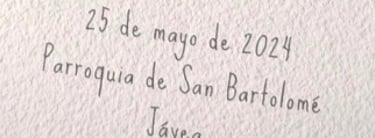 25 de mayo de 2024
Parroquia de San Bartolomé
Jávea